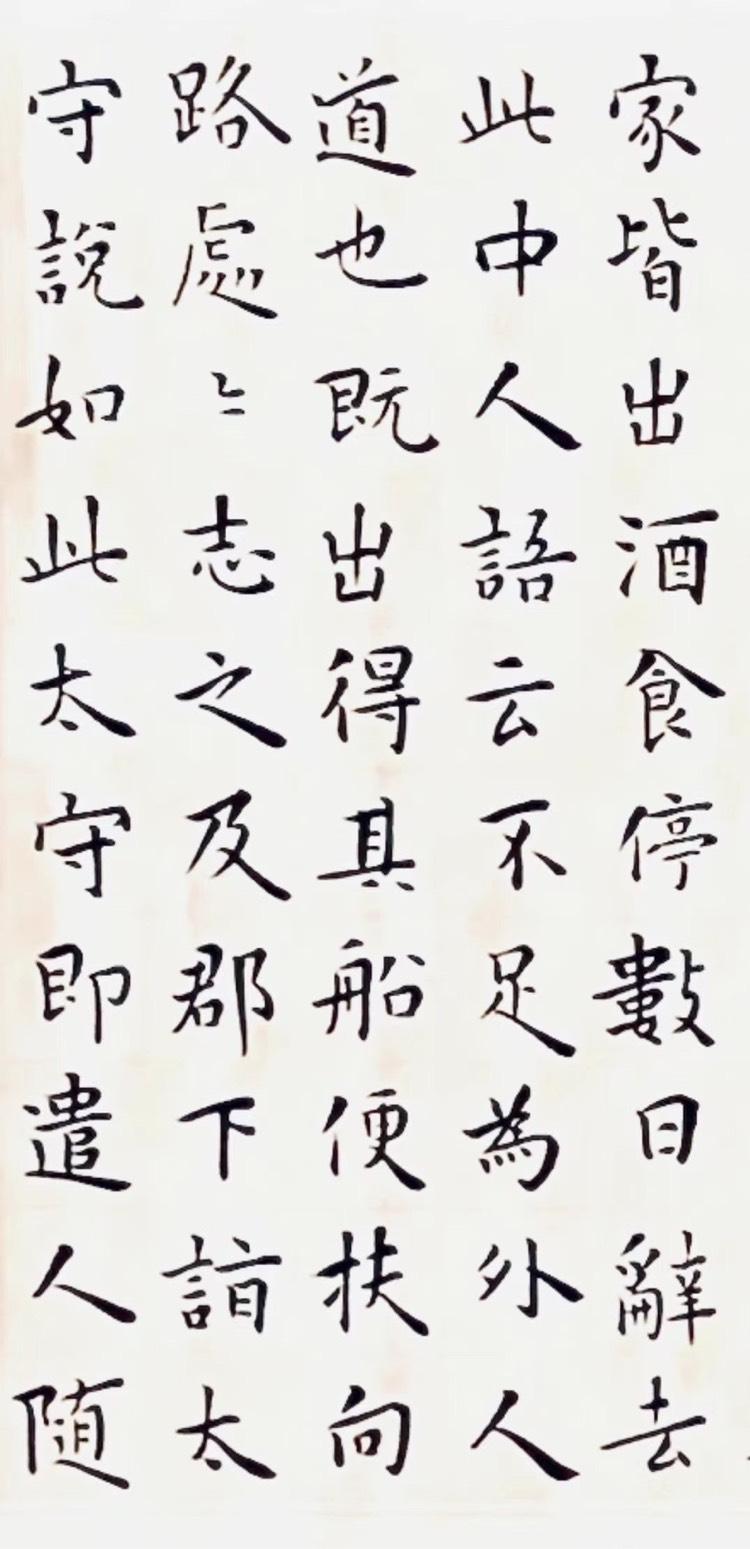 家皆出酒食停數日辭去
此中人語云不足為外人
道也既出得其船便扶向
路處〻志之及郡下詣太
守說如此太守即遣人随